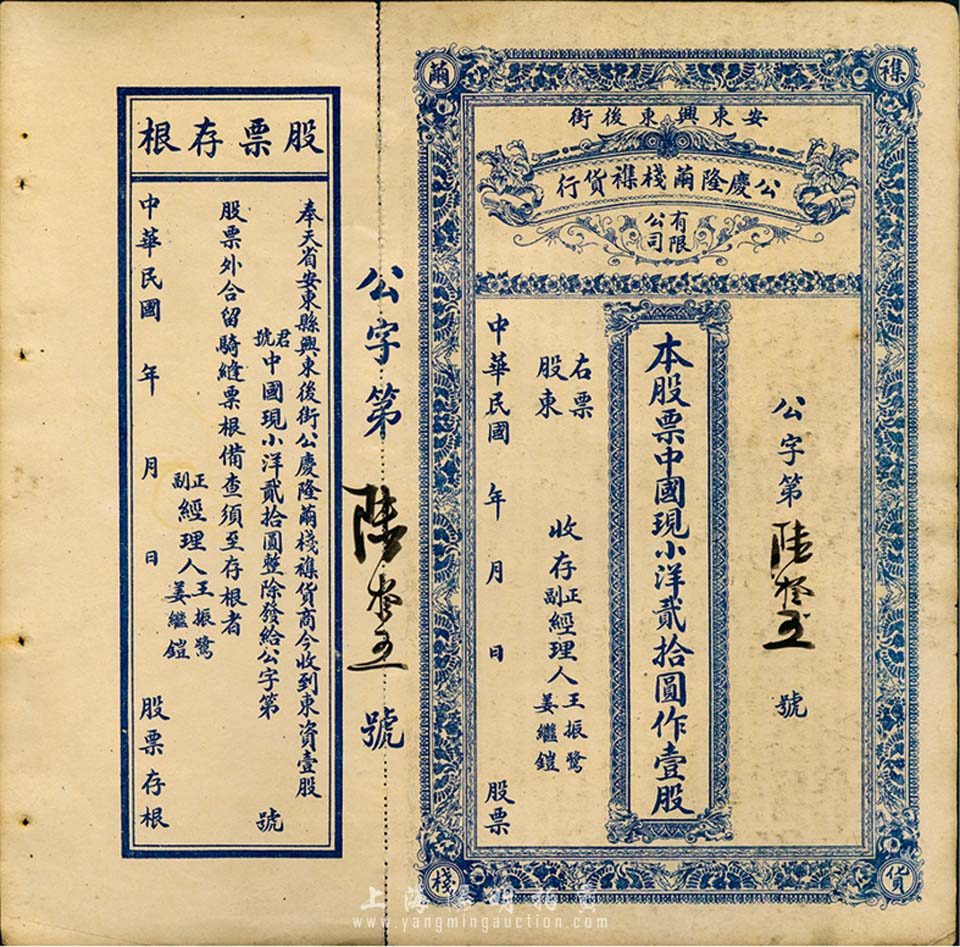 襍
繭
貨
棧
安東興東後街
公慶隆繭棧襍貨行
有限公司
公字第陸拾五號
本股票中國現小洋貳拾圓作壹股
右票
股東
收存
正副經理人王振鷺姜繼鎧
中華民國 年 月 日 股票
公字第陸拾五號
股票存根
奉天省安東縣興東後街公慶隆繭棧襍貨商今收到東資壹股
君號中國現小洋貳拾圓整除發給公字第 號
股票外合留騎縫票根備查須至存根者
正副經理人王振鷺姜繼鎧
中華民國 年 月 日 股票存根
上海陽明拍賣
www.yangmingauction.com